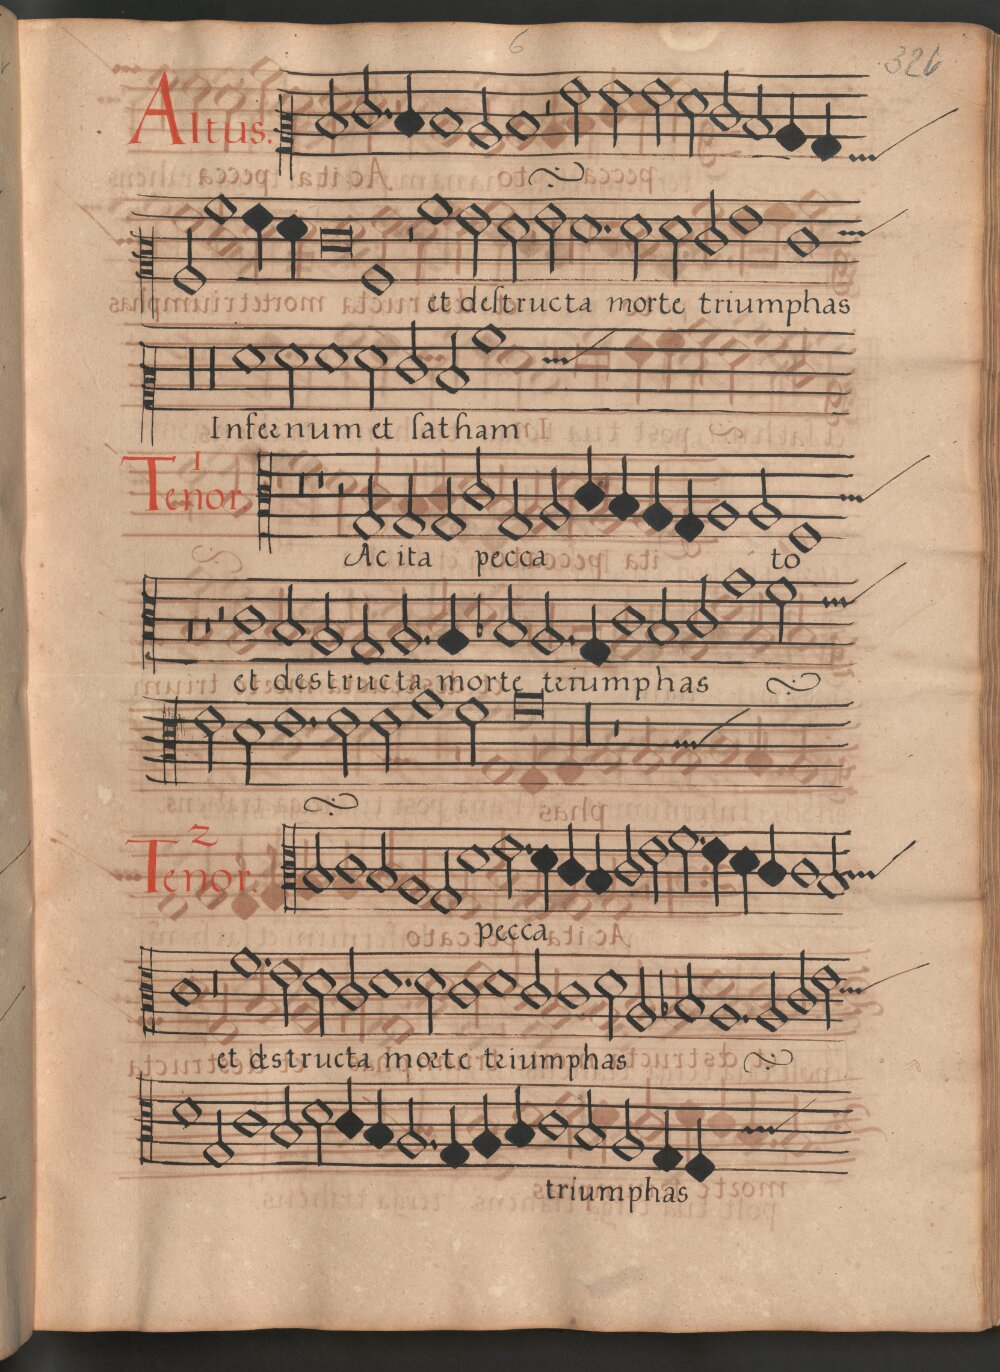 6
326
Altus.
et destructa morte triumphas
Infernum et satham
Tenor 1
Ac ita pecca to
et destructa morte teriumphas
Tenor. 2
pecca
et destructa morte triumphas
triumphas